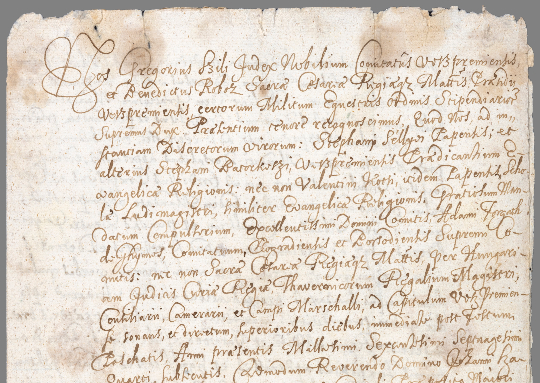 Nos Gregorius Szily Judex Nobilium Comitatus Veszpremiensis,
et Benedictus Roboz Sacrae Caesariae Regiaeqz Mattis Praesidij
Veszpremiensis, certorum Militum Equestris ordinis Stipendiarior
Supremus Dux. Praesentium tenore recognoscimus. Quod Nos ad in,,
stantiam Discretorum virorum: Stephani Séllyei Papensis, et
alterius Stephani Batorkeszi, Veszpremiensis Praedicantium E
vangelicae Religionis: nec non Valentini Koth, itidem Papensis Scho
lae Ludimagistri, similiter Evangelicae Religionis, Praesidium Man
datum Compulsorium, Excellentissimi Domini Comitis, Adami Forgach
de Ghymes, Comitatuum, Neogradiensis et Borsodiensis Supremi Co
mitis: nec non Sacrae Caesariae Regiaeqz Mattis, per Hungari
am Judicis Curiae Regiae Thavernicorum Regalium Magistri,
Consiliarij, Camerarij, et Campi Marschalli, ad Capitulum Veszpremien
se sonans, et directum, superioribus diebus, immediate post Festum
Paschatis, Anni praesentis Millesimi Sexcentesimi Septuagesimi
Quarti, subsequentis, Admodum Reverendo Domino